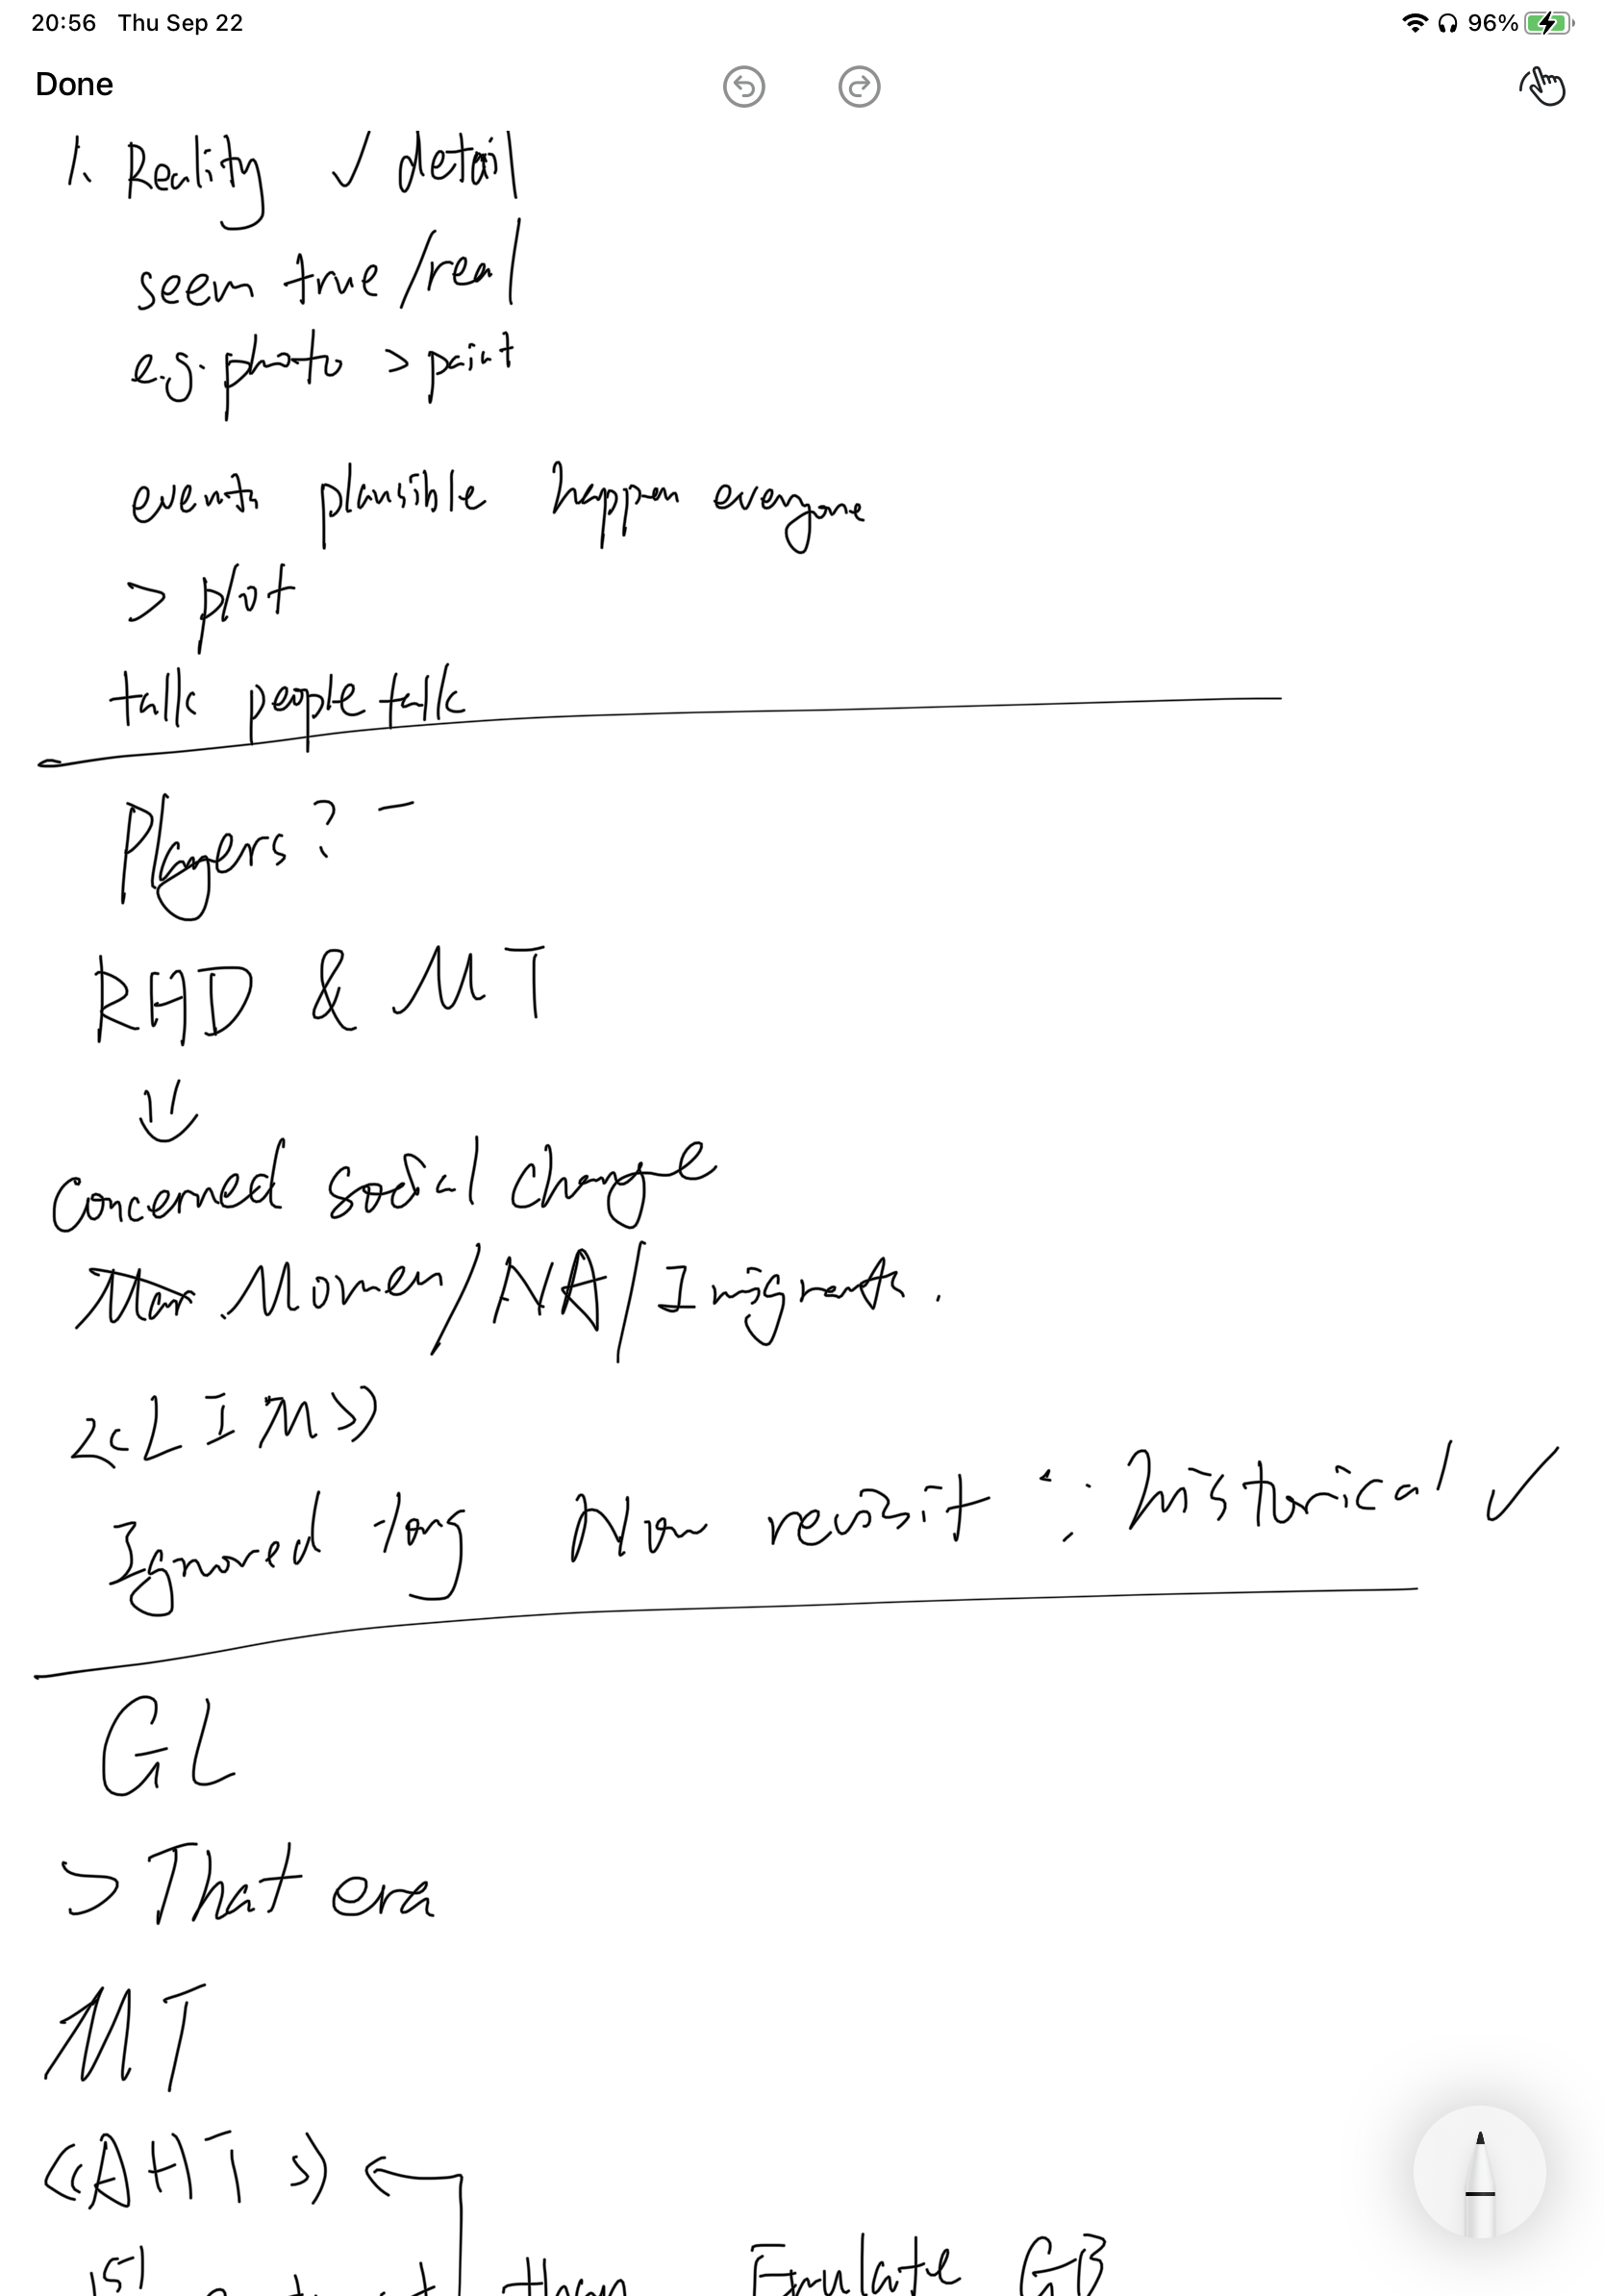 20:56 Thu Sep 22 96%
Done
1. Reality ✓ detail
seem true/real
e.g. photo > paint
events plausible happen everyone
> plot
talk people talk
Players? -
RHD & MT
⇓
Concerned social change
Women/NA/Imigrants.
《LIM》
Ignored long Now revisit ∵ historical ✓
GL
> That era
MT
《AHT》 ←
1st them Emulate GB